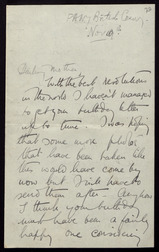 Nov 9th
Darling Mother
With the best resolutions
in the world I haven't managed
to get your birthday letter
up to time. I was hoping
that some more photos
that have been taken like
this would have come by
now but I will have to
send them after. Anyhow
I think your birthday
must have been a fairly
happy one considering